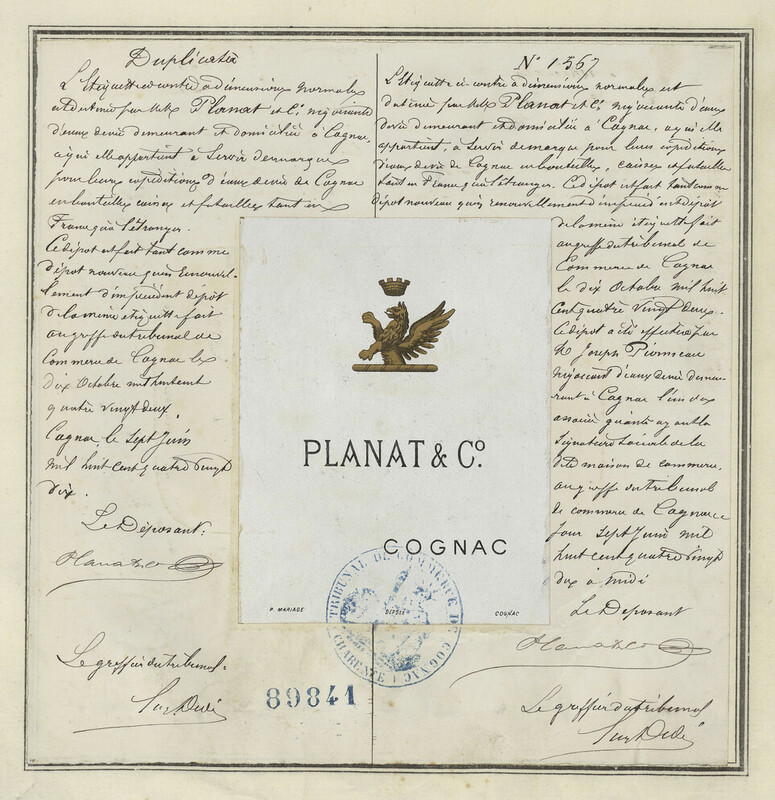 Duplicata
L'Etiquette ci-contre à dimensions normales
est destinée par MM Planat et Cie négociants
d'eaux devie demeurant et domiciliés à Cognac,
à qui elle appartient à Servir de marque
pour leurs expéditions d'eaux devie de Cognac
en bouteilles caisses et futailles tant en
France qu'à l'étranger.
Ce dépot est fait tant comme
dépot nouveau qu'en renouvel-
lement d'un précédent dépot
de la même étiquette fait
au greffe du tribunal de
Commerce de Cognac le
dix Octobre mil huit cent
quatre vingt deux.
Cognac le Sept Juin
mil huit cent quatre vingt
dix.
Le Déposant:
Planat & Co
Le greffier du tribunal:
N° 1367
L'Etiquette ci-contre à dimensions normales est
destinée par MM Planat et Cie négociants d'eaux
devie demeurant et domiciliés à Cognac, à qui elle
appartient, à servir de marque pour leurs expéditions
d'eaux de vie de Cognac en bouteilles, caisses et futailles
tant en France qu'à l'étranger. Ce dépot est fait tant comme
dépot nouveau qu'en renouvellement d'un précédent dépôt
de la même étiquette fait
au greffe du tribunal de
Commerce de Cognac
le dix Octobre mil huit
cent quatre vingt deux.
Ce dépot a été effectué par
M Joseph
négociant d'eaux devie demeu-
rant à Cognac l'un des
associés gérants ayant la
signature sociale de la
dite maison de commerce,
au greffe du tribunal
de commerce de Cognac ce
jour sept Juin mil
huit cent quatre vingt
dix à midi
Le Déposant
Planat & Co
Le greffier du tribunal
PLANAT & Co.
COGNAC
P. MARIAGE DÉPOSÉ COGNAC
TRIBUNAL DE COMMERCE DE COGNAC
CHARENTE
89841